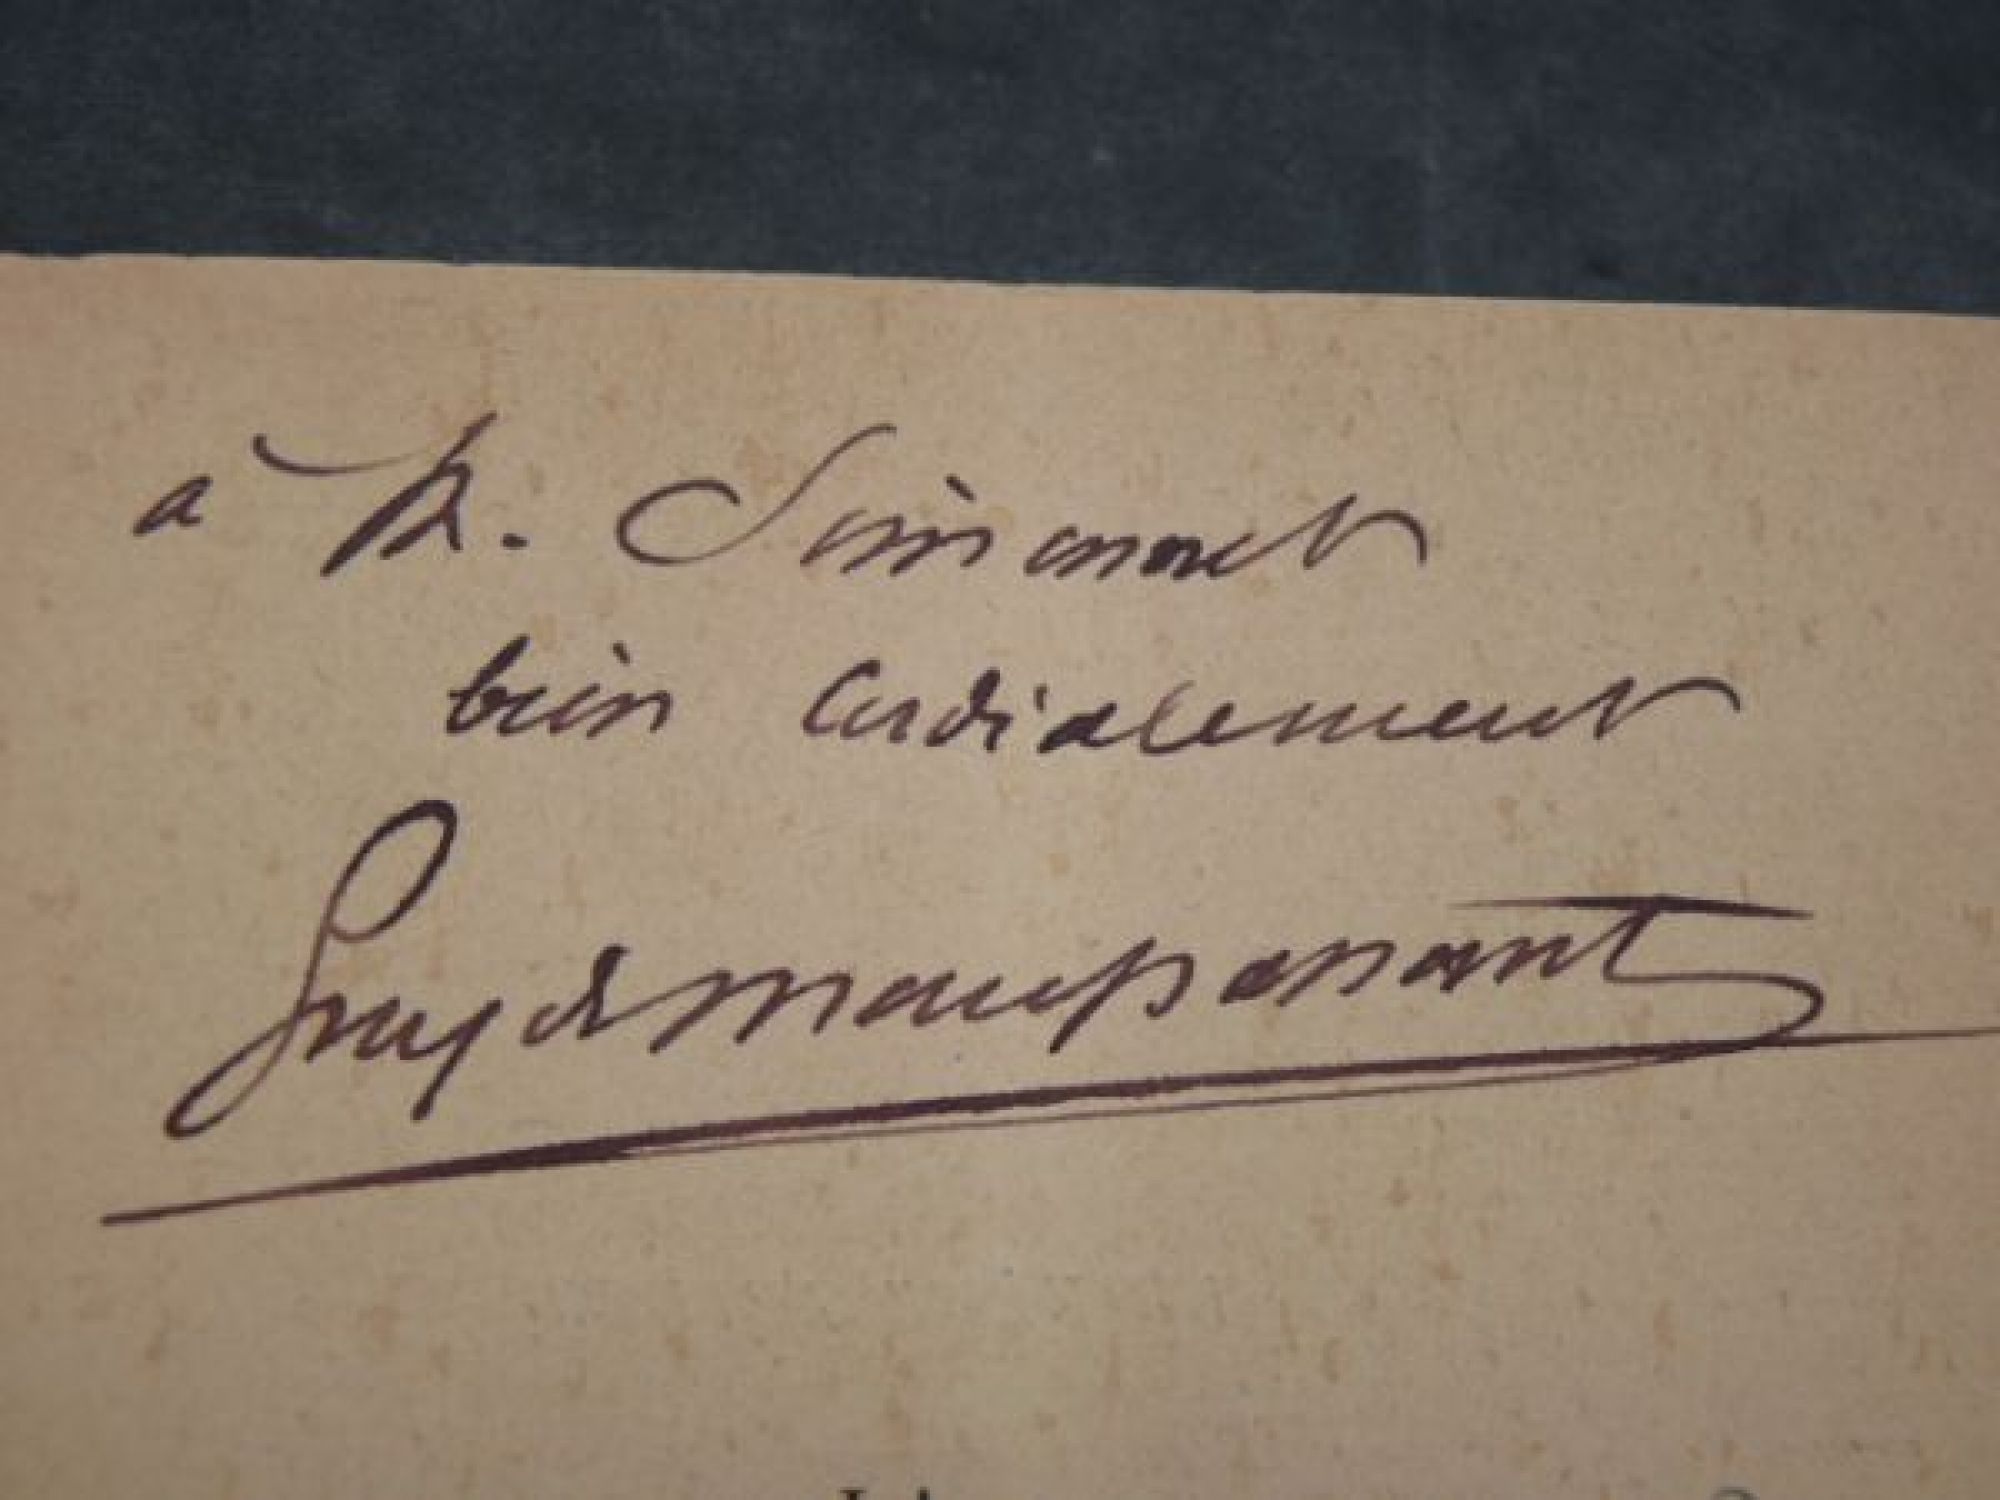 a M. Simonet
bien cordialement
Guy de Maupassant